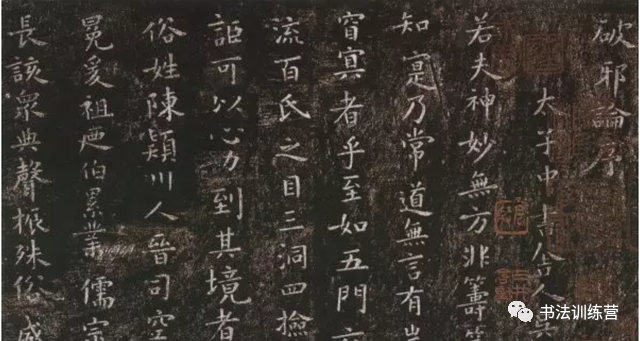 破邪論序
太子中書舍人吳
若夫神妙無方非籌筭
知寔乃常道無言有
窅冥者乎至如五門
流百氏之目三洞四撿
詎可以心力到其境者
俗姓陳潁川人晉司空
冕爰祖迺伯累業儒宗
長該衆典聲振殊俗威
书法训练营